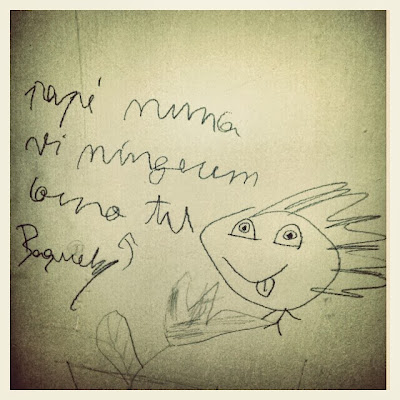 papi nunca
vi ninguem
como tu